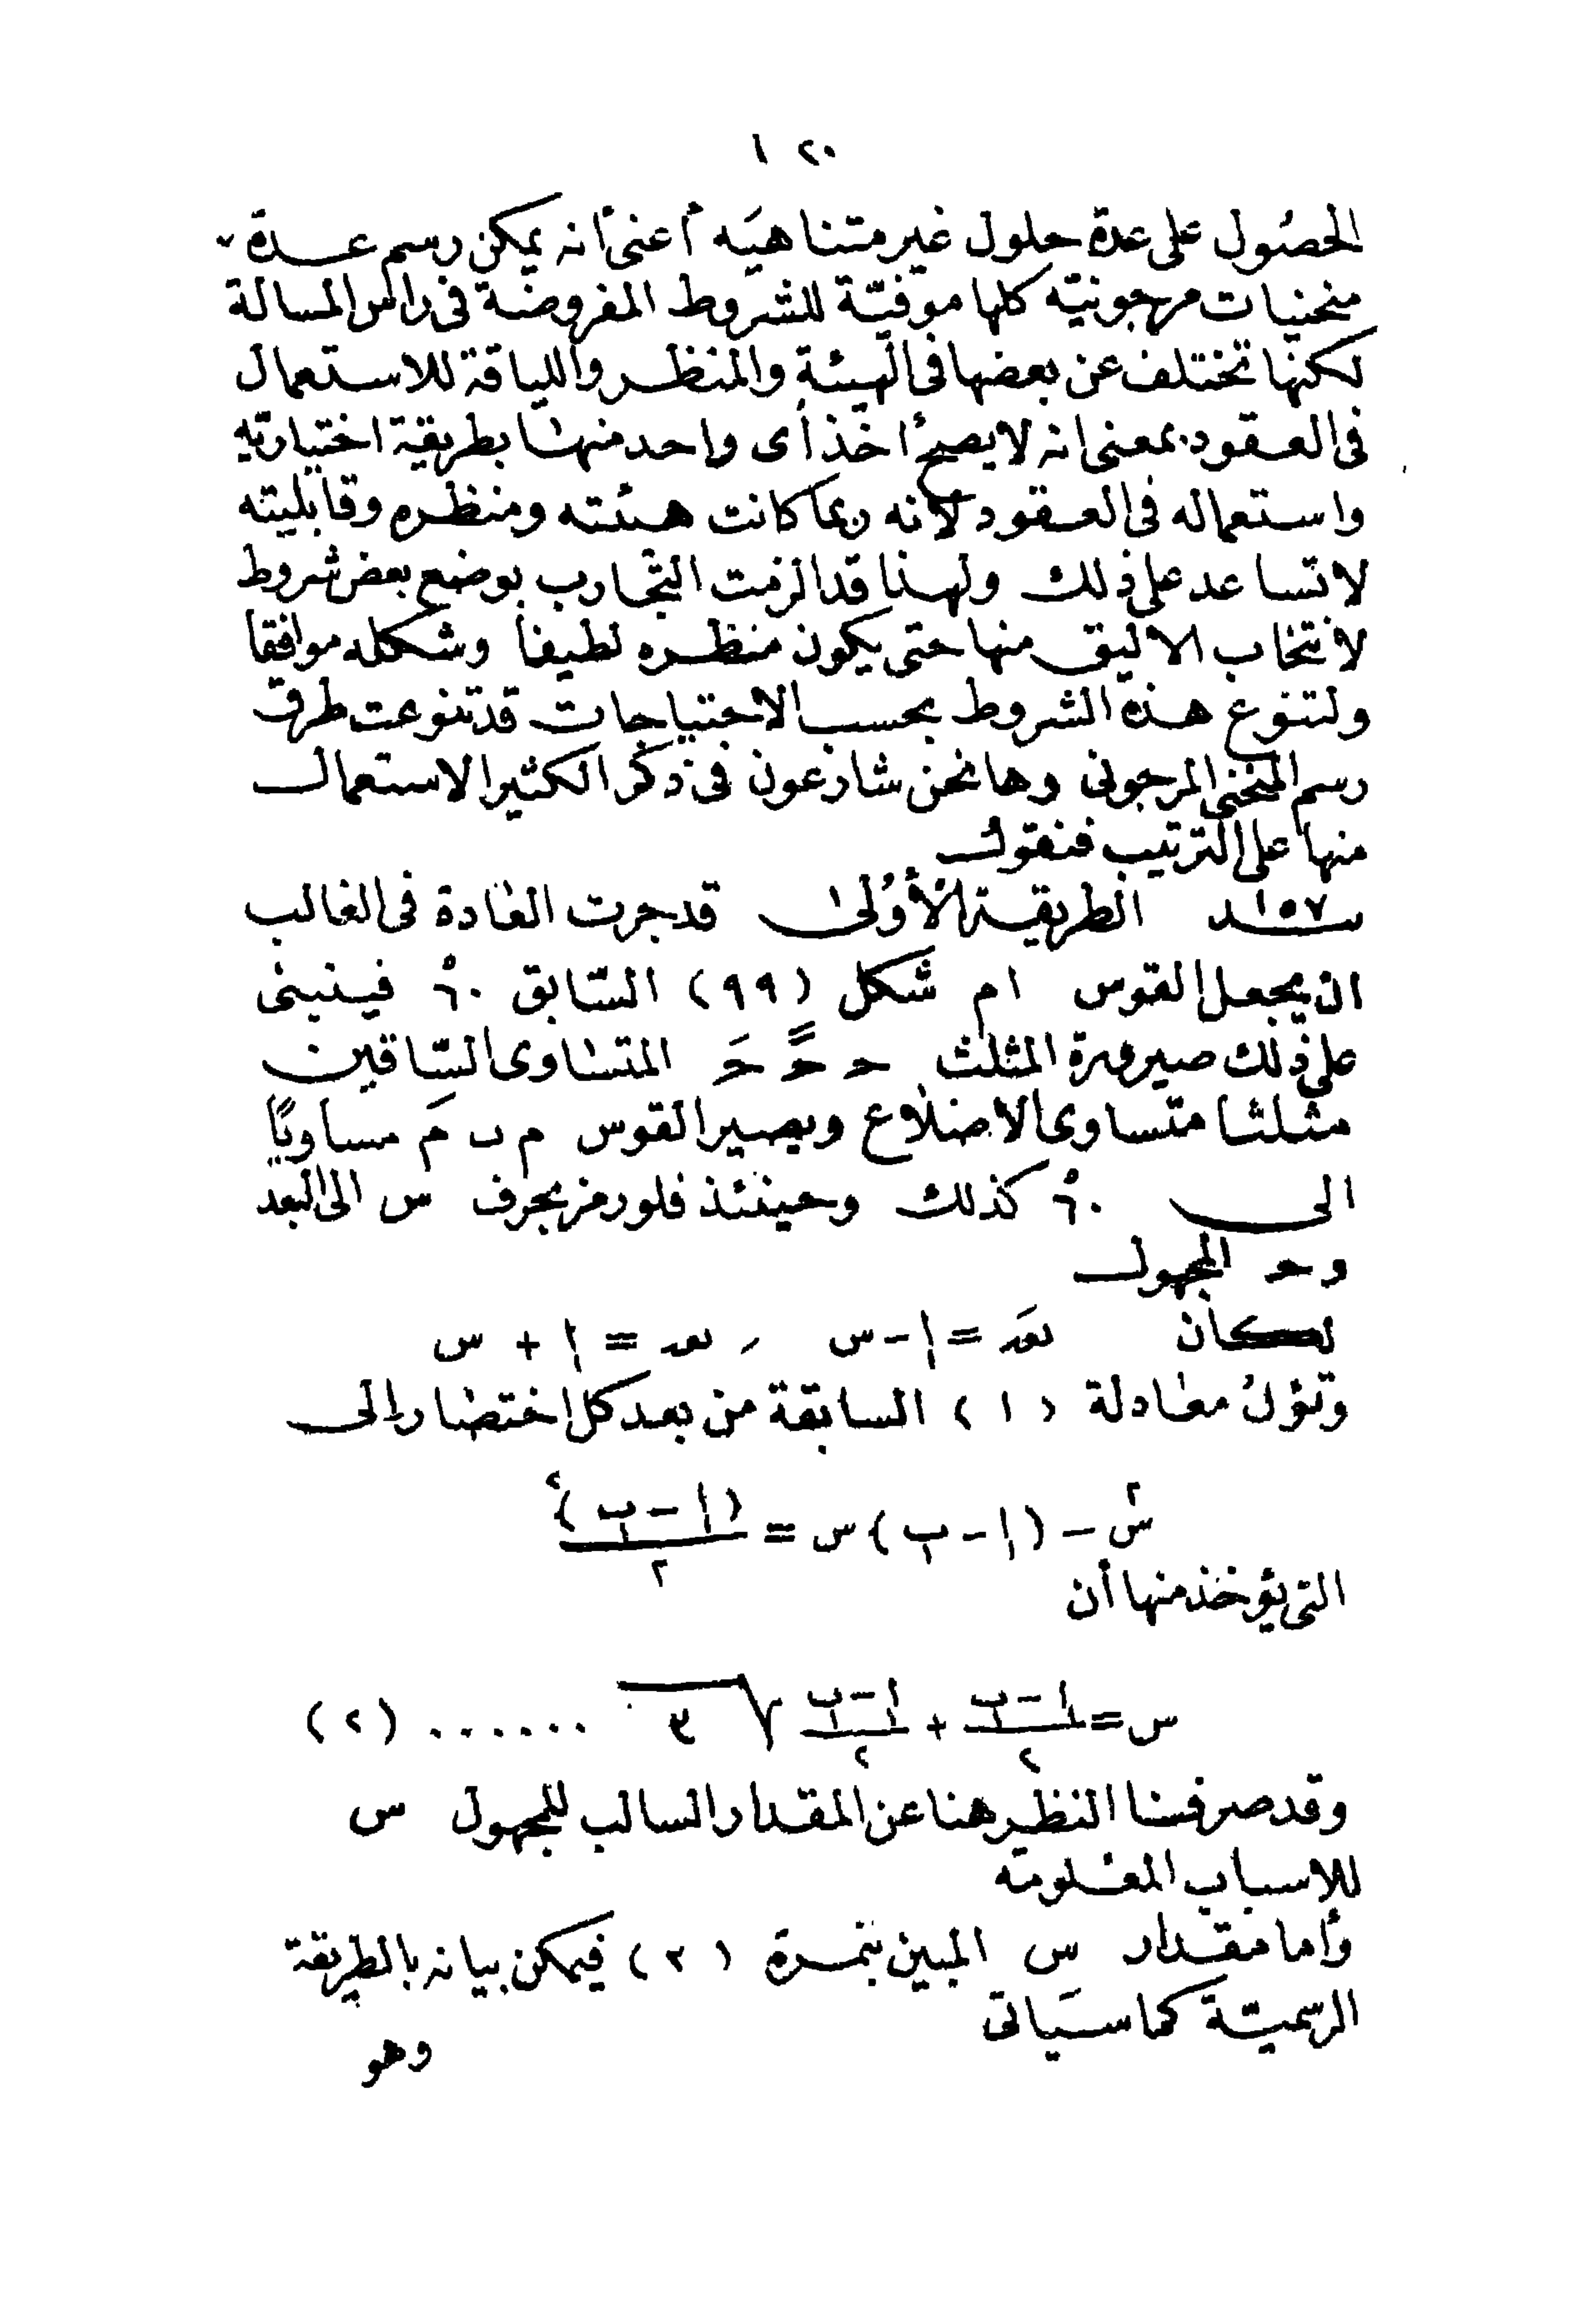 ١٢٠
الحصول على عدة حلول غير متناهيه أعنى أنه يمكن رسم عدة
منحنيات مرجونيته كلها موفيّة للشروط المفروضة فى راس المسالة
لكنها تختلف عن بعضها فى الهيئة والمنظر واللياقة للاستعمال
فى العقود بمعنى انه لا يصح أخذ أى واحد منها بطريقة اختياريّه
واستعماله فى العقود لانه ربما كانت هيئته ومنظره وقابليته
لا تساعد على ذلك ولهذا قد الزمت التجارب بوضع بعض شروط
لانتخاب الاليق منها حتى يكون منظره لطيفا وشكله موافقا
ولتنوع هذه الشروط بحسب الاحتياجات قد تنوعت طرق
رسم المنحنى المرجونى وها نحن شارعون فى ذكر الكثير الاستعمال
منها على الترتيب فنقول
١٥٧ الطريقة الأولى قد جرت العادة فى الغالب
ان يجعل القوس ام شكل (٩٩) السّابق ٦٠ْ فينبنى
على ذلك صيرورة المثلث حـ حـً حـَ المتساوى السّاقين
مثلثا متساوى الاضلاع ويصير القوس م ب مَ مساويًا
الى ٦٠ْ كذلك وحينئذ فلو رمز بحرف س الى البعد
و حـ المجهول
لكان = ا - س ر = ا + س
وتؤل معادلة (١) السابقة من بعد كل اختصار الى
س٢ - (ا - ب) س = (ا - ب)٢ / ٢
التى يؤخذ منها أن
س = (ا - ب)/٢ + (ا - ب)/٢ √٣ ...... (٢)
وقد صرفنا النظر هنا عن المقدار السالب للمجهول س
للاسباب المعلومة
وأما مقدار س المبين بنمرة (٢) فيمكن بيانه بالطريقة
الرسميّة كما سيَاتى
وهو